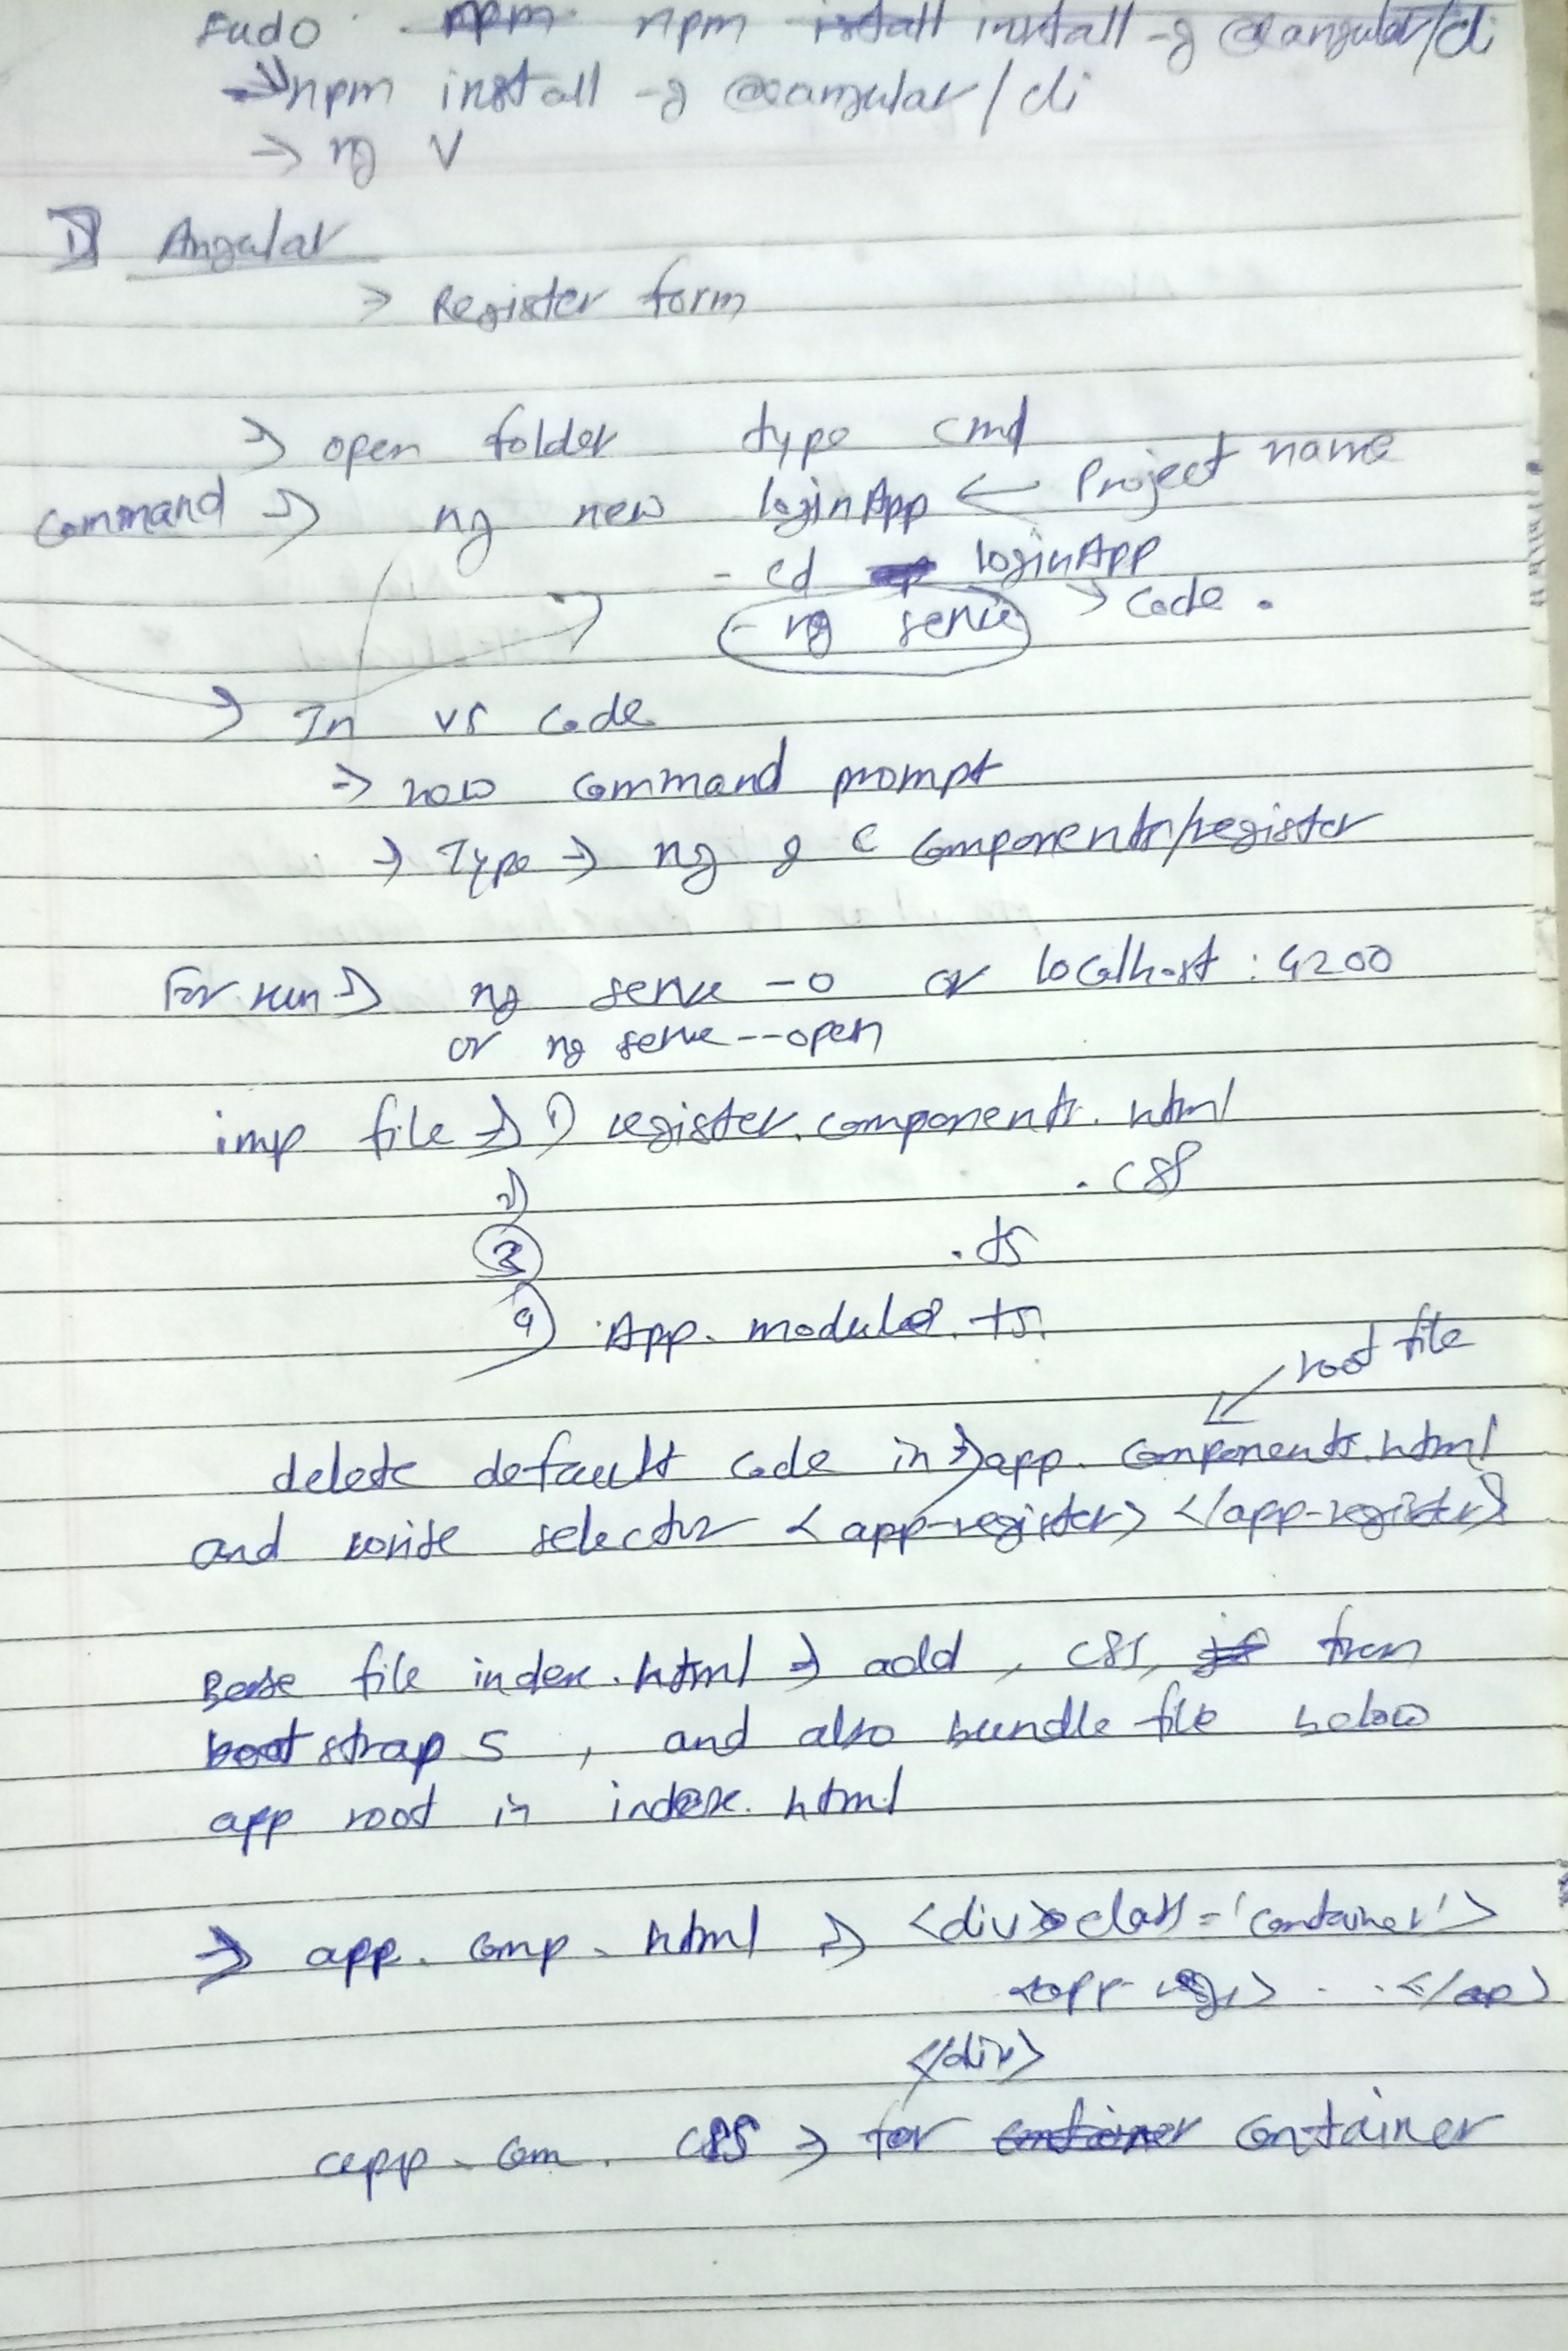 sudo npm install -g @angular/cli
→ npm install -g @angular/cli
→ ng v
1) Angular
→ Register form
→ open folder type cmd
Command → ng new loginApp ← Project name
- cd loginApp
- ng serve → code .
→ In vs code
→ now command prompt
→ Type → ng g c components/register
For run → ng serve -o or localhost : 4200
or ng serve --open
imp file → 1) register.components.html
2) .css
3) .ts
4) App.module.ts
root file
delete default code in → app.components.html
and write selector <app-register> </app-register>
Base file index.html → add , css, from
bootstrap 5 , and also bundle file below
app root in index.html
→ app. comp. html → <div class='container'>
<app-reg> . . </ap>
</div>
app. com. css → for container